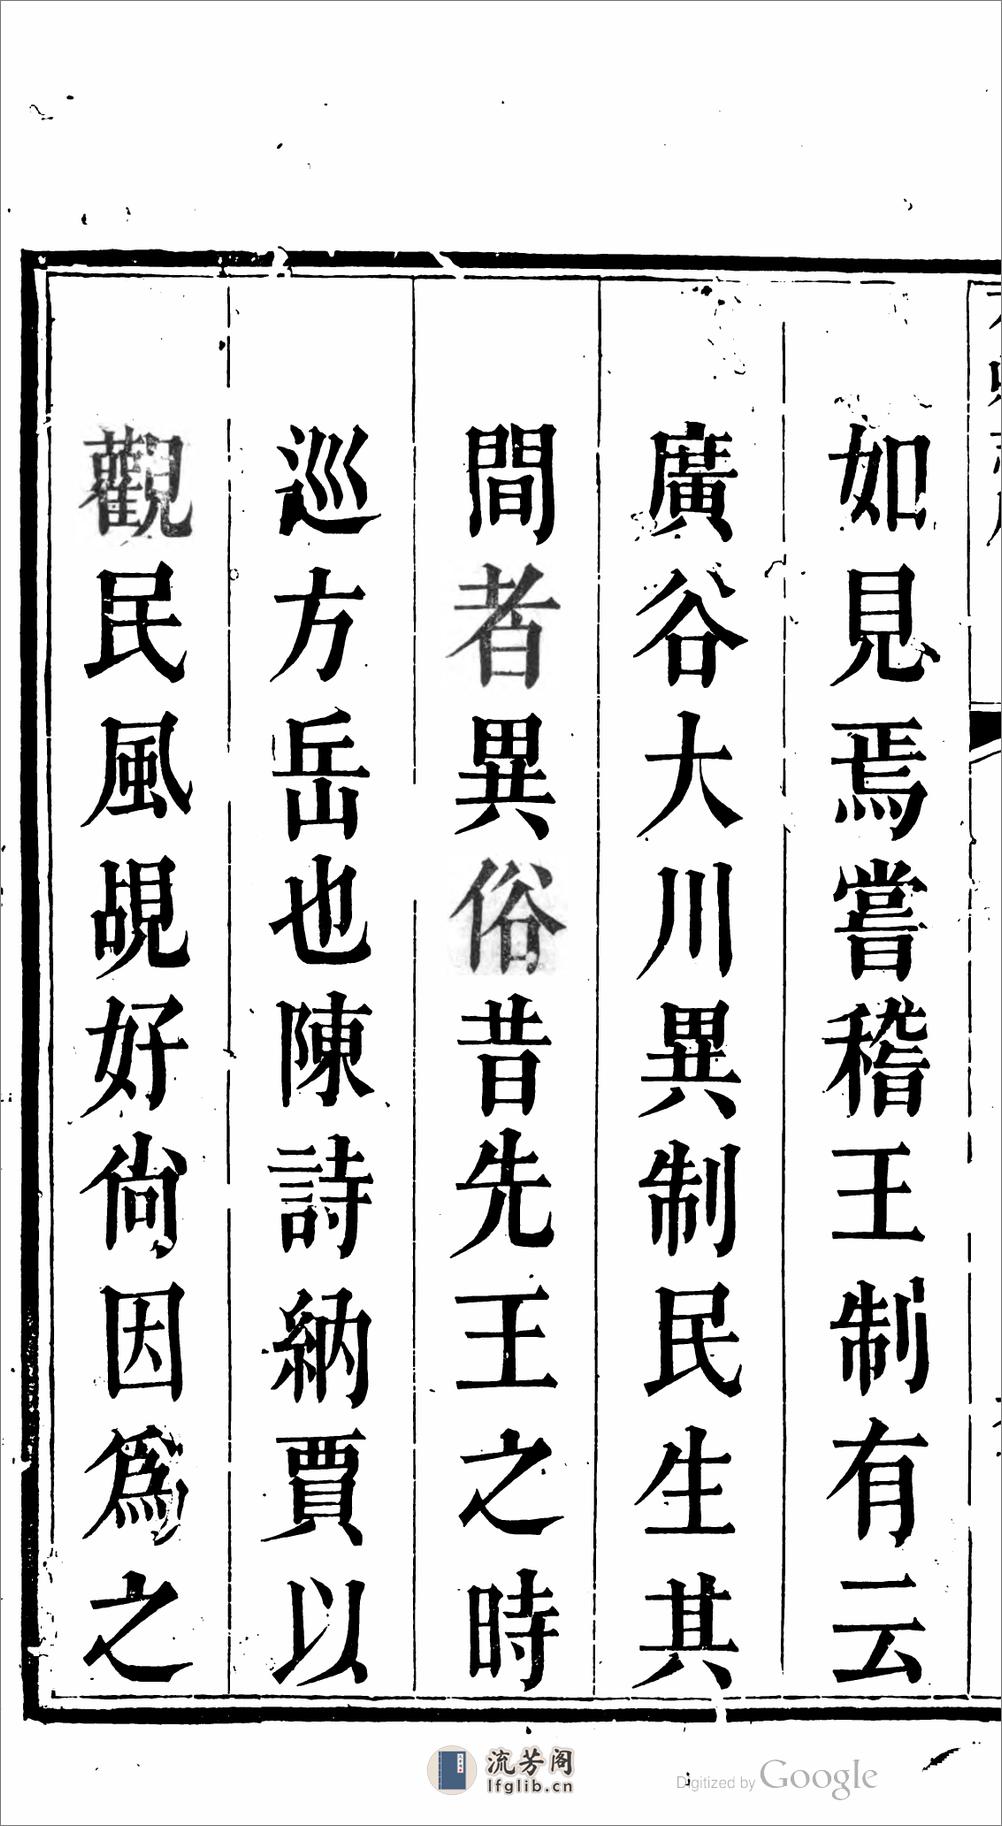 如見焉嘗稽王制有云
廣谷大川異制民生其
間者異俗昔先王之時
巡方岳也陳詩納賈以
觀民風覘好尙因爲之
流芳阁
lfglib.cn
Digitized by Google